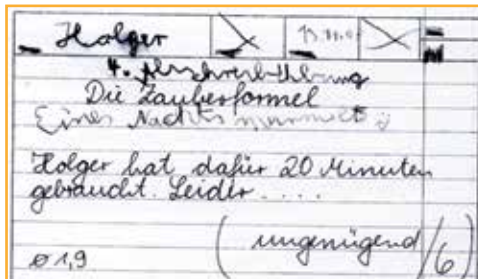 Holger
4. Abschreib-Übung
Die Zauberformel
Eines Nachts murmelt
Holger hat dafür 20 Minuten
gebraucht. Leider ....
(ungenügend /6)
ø 1,9